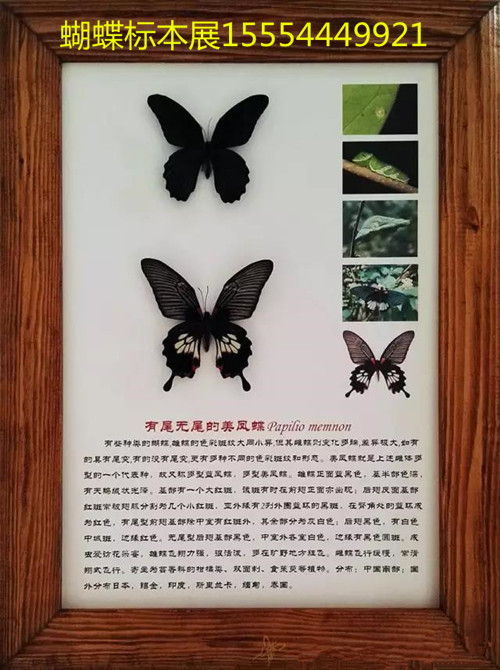 蝴蝶标本展15554449921
有尾无尾的美凤蝶 Papilio memnon
有些种类的蝴蝶,雄蝶的色彩斑纹大同小异,但其雌蝶则变化多端,差异极大,如有
的具有尾突,有的没有尾突,更有多种不同的色彩斑纹和形态。美凤蝶就是上述雌体多
型的一个代表种,故又称多型蓝凤蝶,多型美凤蝶。雄蝶正面蓝黑色,基半部色深,
有天鹅绒状光泽。基部有一个大红斑,该斑有时在前翅正面亦出现;后翅反面基部
红斑常被翅脉分割为几个小红斑,亚外缘有2列外围蓝环的黑斑,在臀角处的蓝环成
为红色,有尾型前翅基部除中室有红斑外,其余部分为灰白色;后翅黑色,有白色
中域斑,边缘红色。无尾型后翅基部黑色,中室外各室白色,边缘有黑色圆斑。成
虫爱访花采蜜,雄蝶飞翔力强,很活泼,多在旷野地方狂飞。雌蝶飞行缓慢,常滑
翔式飞行。寄主为芸香科的柑橘类、双面刺、食茱萸等植物。分布:中国南部;国
外分布日本,锡金,印度,斯里兰卡,缅甸,泰国。